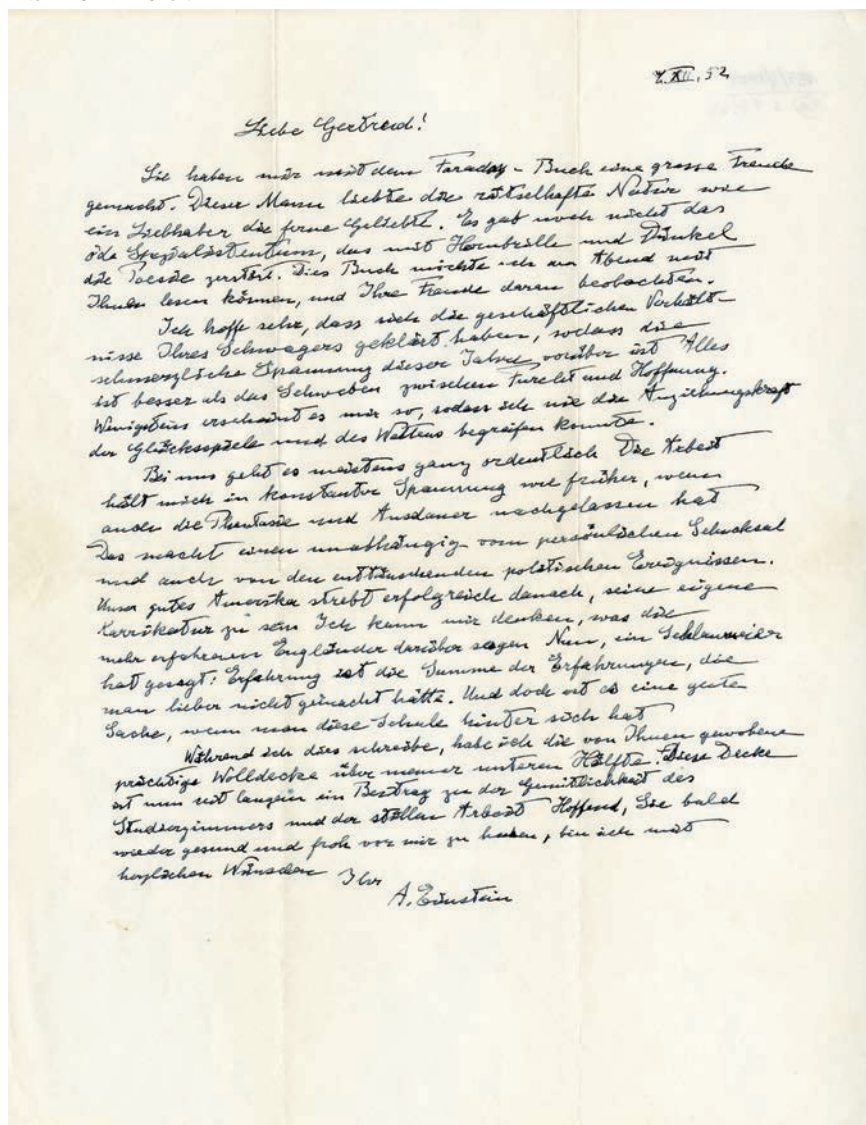 7.XII.52
Liebe Gertrud!
Sie haben mir mit dem Faraday-Buch eine grosse Freude
gemacht. Dieser Mann liebte die rätselhafte Natur wie
ein Liebhaber die ferne Geliebte. Es gab noch nicht das
öde Spezialistentum, das mit Hornbrille und Dünkel
die Poesie zerstört. Dies Buch möchte ich am Abend mit
Ihnen lesen können, und Ihre Freude daran beobachten.
Ich hoffe sehr, dass sich die geschäftlichen Verhält-
nisse Ihres Schwagers geklärt haben, sodass die
schmerzliche Spannung dieser Jahre vorüber ist Alles
ist besser als das Schweben zwischen Furcht und Hoffnung.
Wenigstens erscheint es mir so, sodass ich nie die Anziehungskraft
der Glücksspiele und des Wettens begreifen konnte.
Bei uns geht es meistens ganz ordentlich Die Arbeit
hält mich in konstanter Spannung wie früher, wenn
auch die Phantasie und Ausdauer nachgelassen hat
Das macht einen unabhängig vom persönlichen Schicksal
und auch von den enttäuschenden politischen Ereignissen.
Unser gutes Amerika strebt erfolgreich danach, seine eigene
Karrikatur zu sein Ich kann mir denken, was die
mehr erfahrenen Engländer darüber sagen Nun, ein Schlaumeier
hat gesagt: Erfahrung ist die Summe der Erfahrungen, die
man lieber nicht gemacht hätte. Und doch ist es eine gute
Sache, wenn man diese Schule hinter sich hat
Während ich dies schreibe, habe ich die von Ihnen gewobene
prächtige Wolldecke über meiner unteren Hälfte. Diese Decke
ist nun seit langem ein Beitrag zu der Gemütlichkeit des
Studierzimmers und der stillen Arbeit Hoffend, Sie bald
wieder gesund und froh vor mir zu haben, bin ich mit
herzlichen Wünschen Ihr
A. Einstein